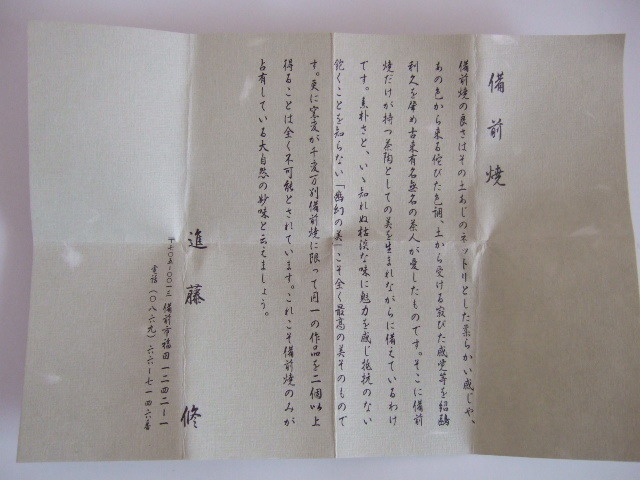 備前焼
備前焼の良さはその土あじのネットリとした柔らかい感じや、
あの色から来る侘びた色調、土から受ける寂びた感覚等を紹鴎
利久を始め古来有名無名の茶人が愛したものです。そこに備前
焼だけが持つ茶陶としての美を生まれながらに備えているわけ
です。素朴さと、いゝ知れぬ枯淡な味に魅力を感じ抵抗のない
飽くことを知らない「幽幻の美」こそ全く最高の美そのもので
す。更に窯変が千変万別備前焼に限って同一の作品を二個以上
得ることは全く不可能とされています。これこそ備前焼のみが
占有している大自然の妙味と云えましょう。
進藤 修
〒七〇五ー〇〇一三 備前市福田一二四二ー一
電話(〇八六九)六六ー七一四六番